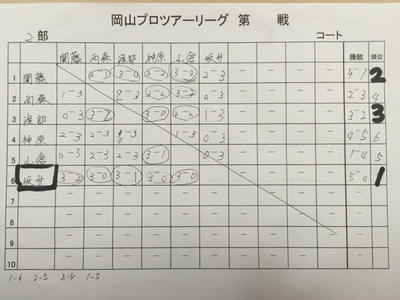 岡山プロツアーリーグ 第 戦
2部 コート
関藤 高森 渡部 神原 小倉 坂井 勝敗 順位
1 関藤 3-0 3-2 3-0 2-3 4-1 2
2 高森 1-3 2-3 3-2 3-2 0-3 2-3 4
3 渡部 0-3 3-2 3-0 3-0 1-3 3-2 3
4 神原 2-3 2-3 0-3 1-3 0-3 0-5 6
5 小倉 0-3 2-3 2-3 3-1 0-3 1-4 5
6 坂井 3-2 3-0 3-1 3-0 3-0 - - - - 5-0 1
7 - - - - - - - - - - -
8 - - - - - - - - - - -
9 - - - - - - - - - - -
10 - - - - - - - - - -
1-6 2-5 3-4 1-5